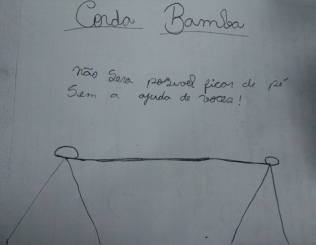 Corda Bamba
Não Sera possivel ficar de pé
Sem a ajuda de voces!